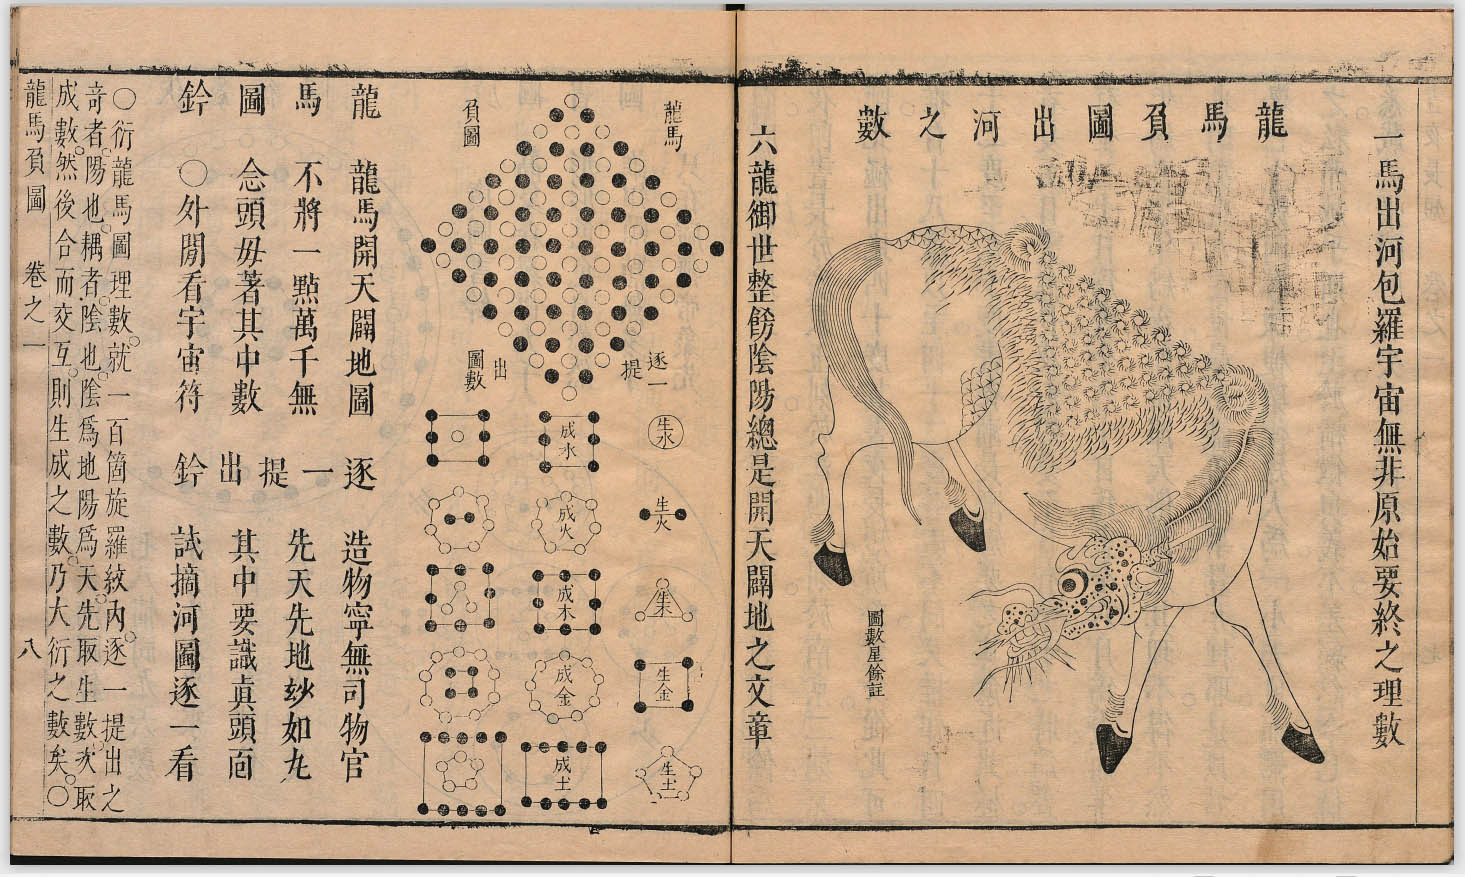 一馬出河包羅宇宙無非原始要終之理數
龍馬負圖出河之數
圖數星餘註
六龍御世整飭陰陽總是開天闢地之文章
龍馬
負圖
逐一
提
出
圖數
生水
成水
生火
成火
生木
成木
生金
成金
生土
成土
龍馬圖鈐
龍馬開天闢地圖
不將一點萬千無
念頭毋著其中數
○外閒看宇宙符
逐一提出鈐
造物寧無司物官
先天先地玅如丸
其中要識真頭面
試摘河圖逐一看
○衍龍馬圖理數就一百箇旋羅紋內逐一提出之
奇者陽也耦者陰也陰爲地陽爲天先取生數次取
成數然後合而交互則生成之數乃大衍之數矣○
龍馬負圖 卷之一 八